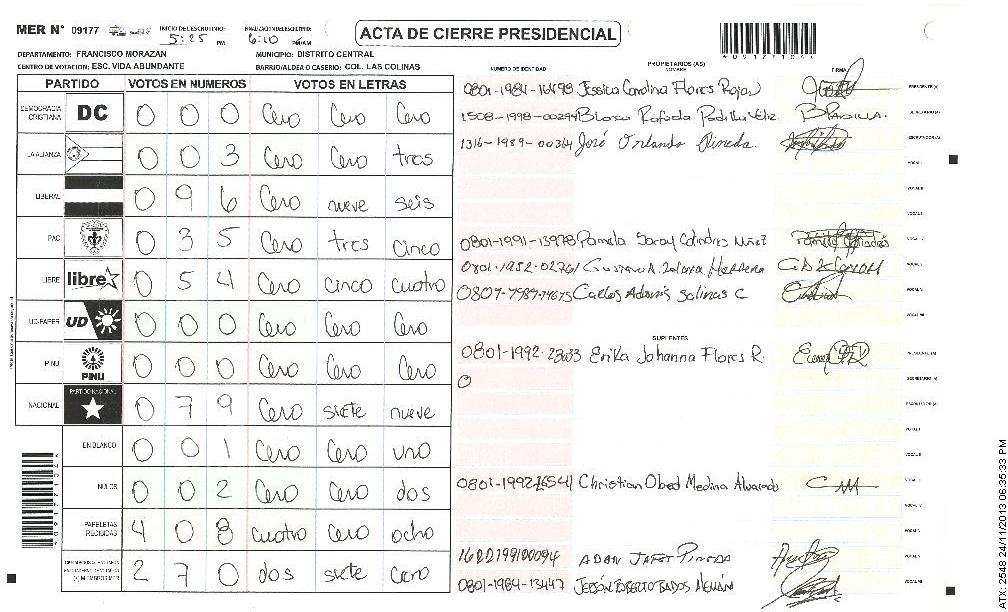 MER N° 09177
INICIO DE ESCRUTINIO: 5:25 PM
FINALIZACION DE ESCRUTINIO: 6:10 PM/AM
ACTA DE CIERRE PRESIDENCIAL
DEPARTAMENTO: FRANCISCO MORAZAN MUNICIPIO: DISTRITO CENTRAL
CENTRO DE VOTACION: ESC. VIDA ABUNDANTE BARRIO/ALDEA O CASERIO: COL. LAS COLINAS
PARTIDO VOTOS EN NUMEROS VOTOS EN LETRAS
DEMOCRACIA CRISTIANA DC 0 0 0 Cero Cero Cero
LA ALIANZA 0 0 3 Cero Cero tres
LIBERAL 0 9 6 Cero nueve seis
PAC 0 3 5 Cero tres cinco
LIBRE libre 0 5 4 Cero cinco cuatro
UD-FAPER UD 0 0 0 Cero Cero Cero
PINU PINU 0 0 0 Cero Cero Cero
NACIONAL PARTIDO NACIONAL 0 7 9 Cero siete nueve
EN BLANCO 0 0 1 Cero Cero uno
NULOS 0 0 2 Cero Cero dos
PAPELETAS RECIBIDAS 4 0 8 cuatro cero ocho
2 7 0 dos siete cero
NUMERO DE IDENTIDAD PROPIETARIOS (AS) NOMBRE FIRMA
Jessica Carolina Flores Rojas PRESIDENTE (A)
Padilla B PADILLA. SECRETARIO (A)
1316-1989-00364 José Orlando Pineda. ESCRUTADOR (A)
VOCAL I
VOCAL II
VOCAL III
0801-1991-13978 Pamela Saray Colindres Nuñez
0801-1952-02761 Gustavo A. Herrera
Carlos Adonis Salinas C
SUPLENTES
0801-1992-23633 Erika Johanna Flores R. PRESIDENTE (A)
SECRETARIO (A)
ESCRUTADOR (A)
VOCAL I
VOCAL II
Christian Obed Medina Alvarado CM
ADAN JAFET PINEDA
0801-1984-13447
ATX: 2548 24/11/2013 06:35:33 PM